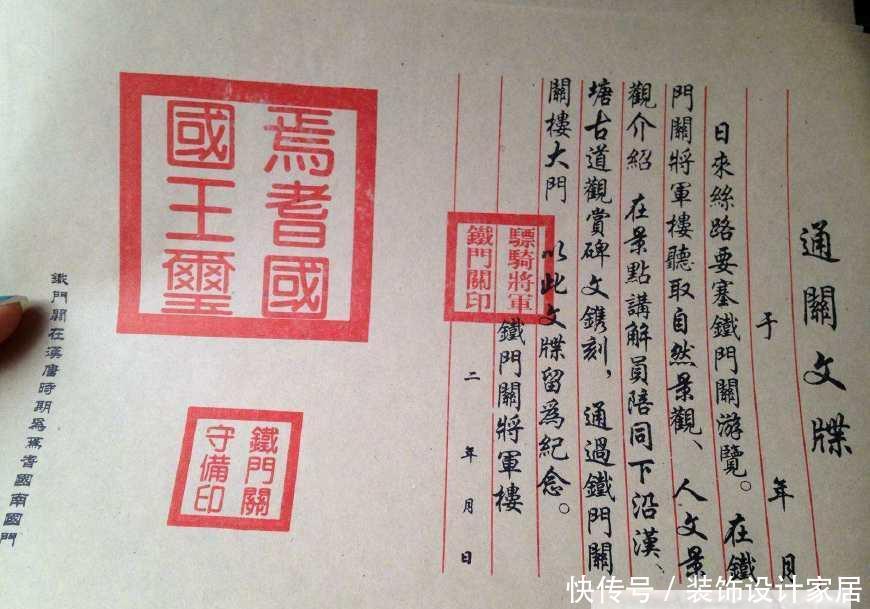 通關文牒
于 年 月
日來絲路要塞鐵門關游覽。在鐵
門關將軍樓聽取自然景觀、人文景
觀介紹 在景點講解員陪同下沿漢、
塘古道觀賞碑文鐫刻，通過鐵門關
關樓大門 以此文牒留爲紀念。
鐵門關將軍樓
二 年 月 日
驃騎將軍
鐵門關印
焉耆國
國王璽
鐵門關
守備印
鐵門關在漢唐時期爲焉耆國南國門
快传号/装饰设计家居